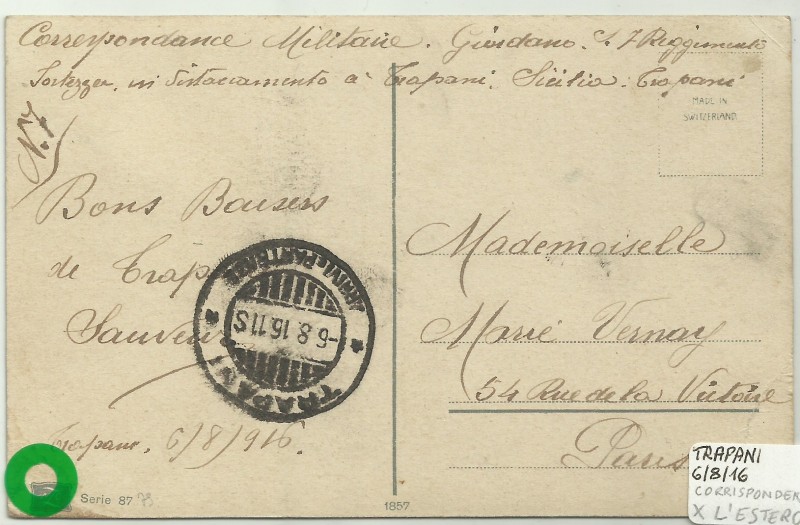 Correspondance Militaire. Giordano. S. 7 Reggimento
in distaccamento a Trapani. Sicilia. Trapani
N. 7
MADE IN
SWITZERLAND
Bons Baisers
de Trap
Sauveur
Trapani, 6/8/916.
Mademoiselle
Marie Vernay
54 Rue de la Victoire
Paris
ARRIVI E PARTENZE
-6.8.16.11S
TRAPANI
Serie 87
1857
TRAPANI
6/8/16
CORRISPONDEN
X L'ESTERO